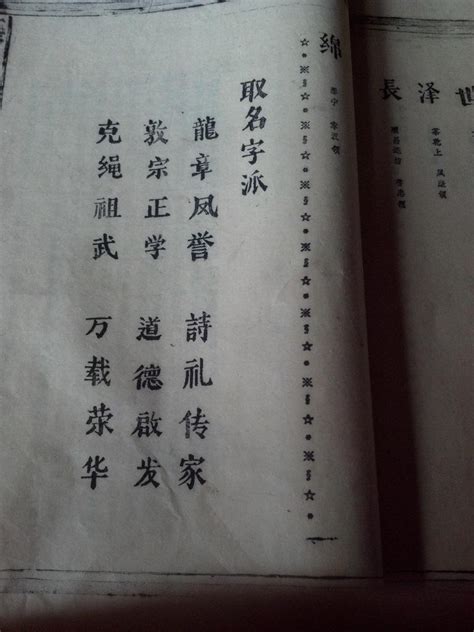 世泽長
绵
取名字派
龍章凤誉 詩礼传家
敦宗正学 道德啟发
克绳祖武 万载荣华